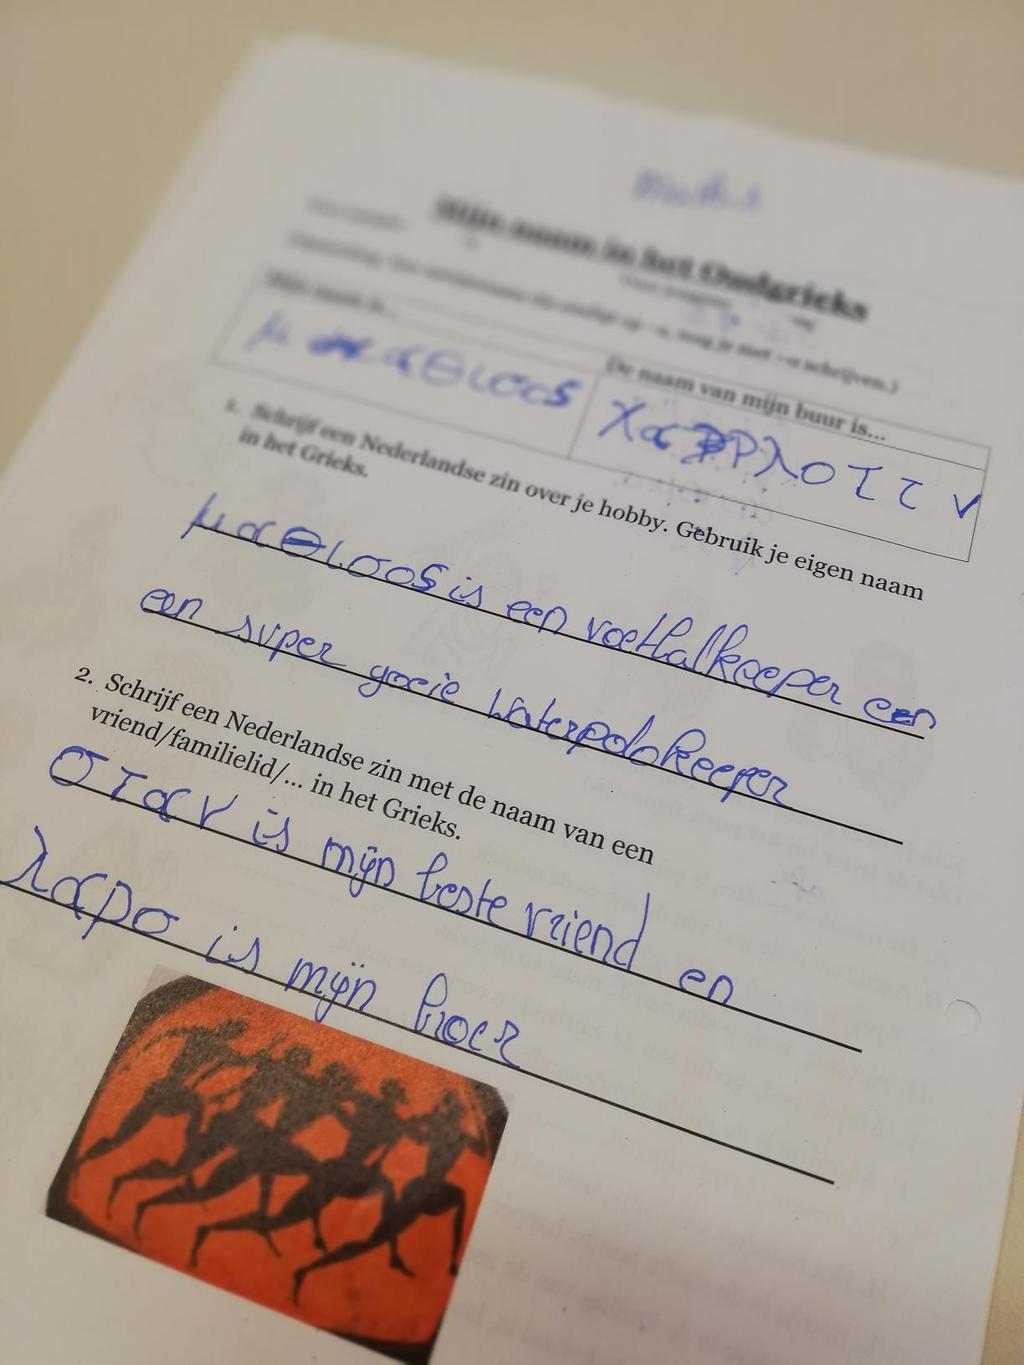 Mijn naam in het Oudgrieks
Mijn naam is...
De naam van mijn buur is...
μ αθισος
χαρλοττ ν
1. Schrijf een Nederlandse zin over je hobby. Gebruik je eigen naam
in het Grieks.
μαθιοος is een voetbalkeeper een
een super goeie waterpolokeeper
2. Schrijf een Nederlandse zin met de naam van een
vriend/familielid/... in het Grieks.
σταν is mijn beste vriend en
λαρσ is mijn broer